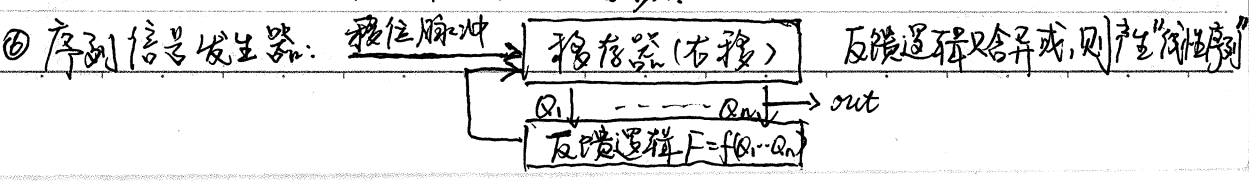 ⑥ 序列信号发生器: 移位脉冲 移存器(右移) 反馈逻辑只含异或,则产生"线性序列"
Q₁ ------ Qₙ out
反馈逻辑 F=f(Q₁…Qₙ)